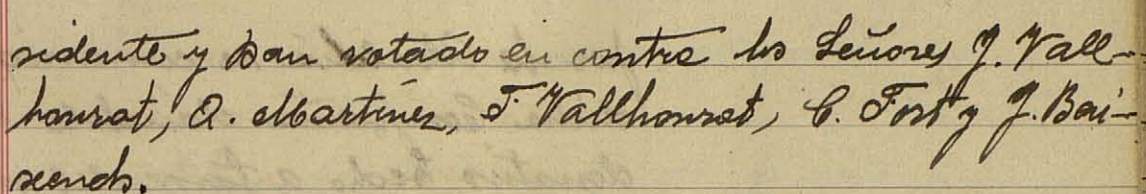 sidente y han votado en contra los Señores J. Vall-
honrat, A. Martínez, F. Vallhonrat, C. Fort y J. Bai-
xench.